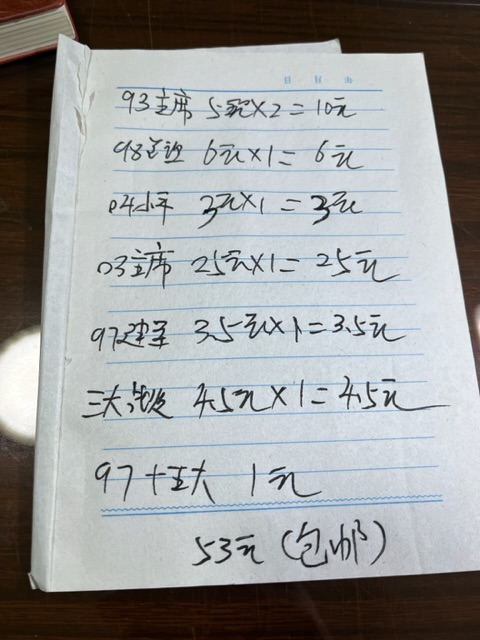 日 期
93主席 5元X2=10元
98总理 6元X1=6元
04小平 3元X1=3元
03主席 25元X1=25元
97建军 3.5元X1=3.5元
三大战役 4.5元X1=4.5元
97十五大 1元
53元(包邮)